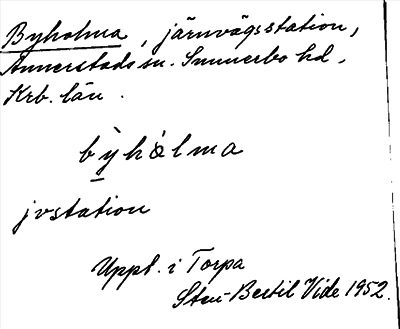 Byholma, järnvägsstation,
Annerstads sn. Sunnerbo hd.
Krb. län.
bỳhòlma
jvstation
Uppt. i Torpa
Sten-Bertil Vide 1952.